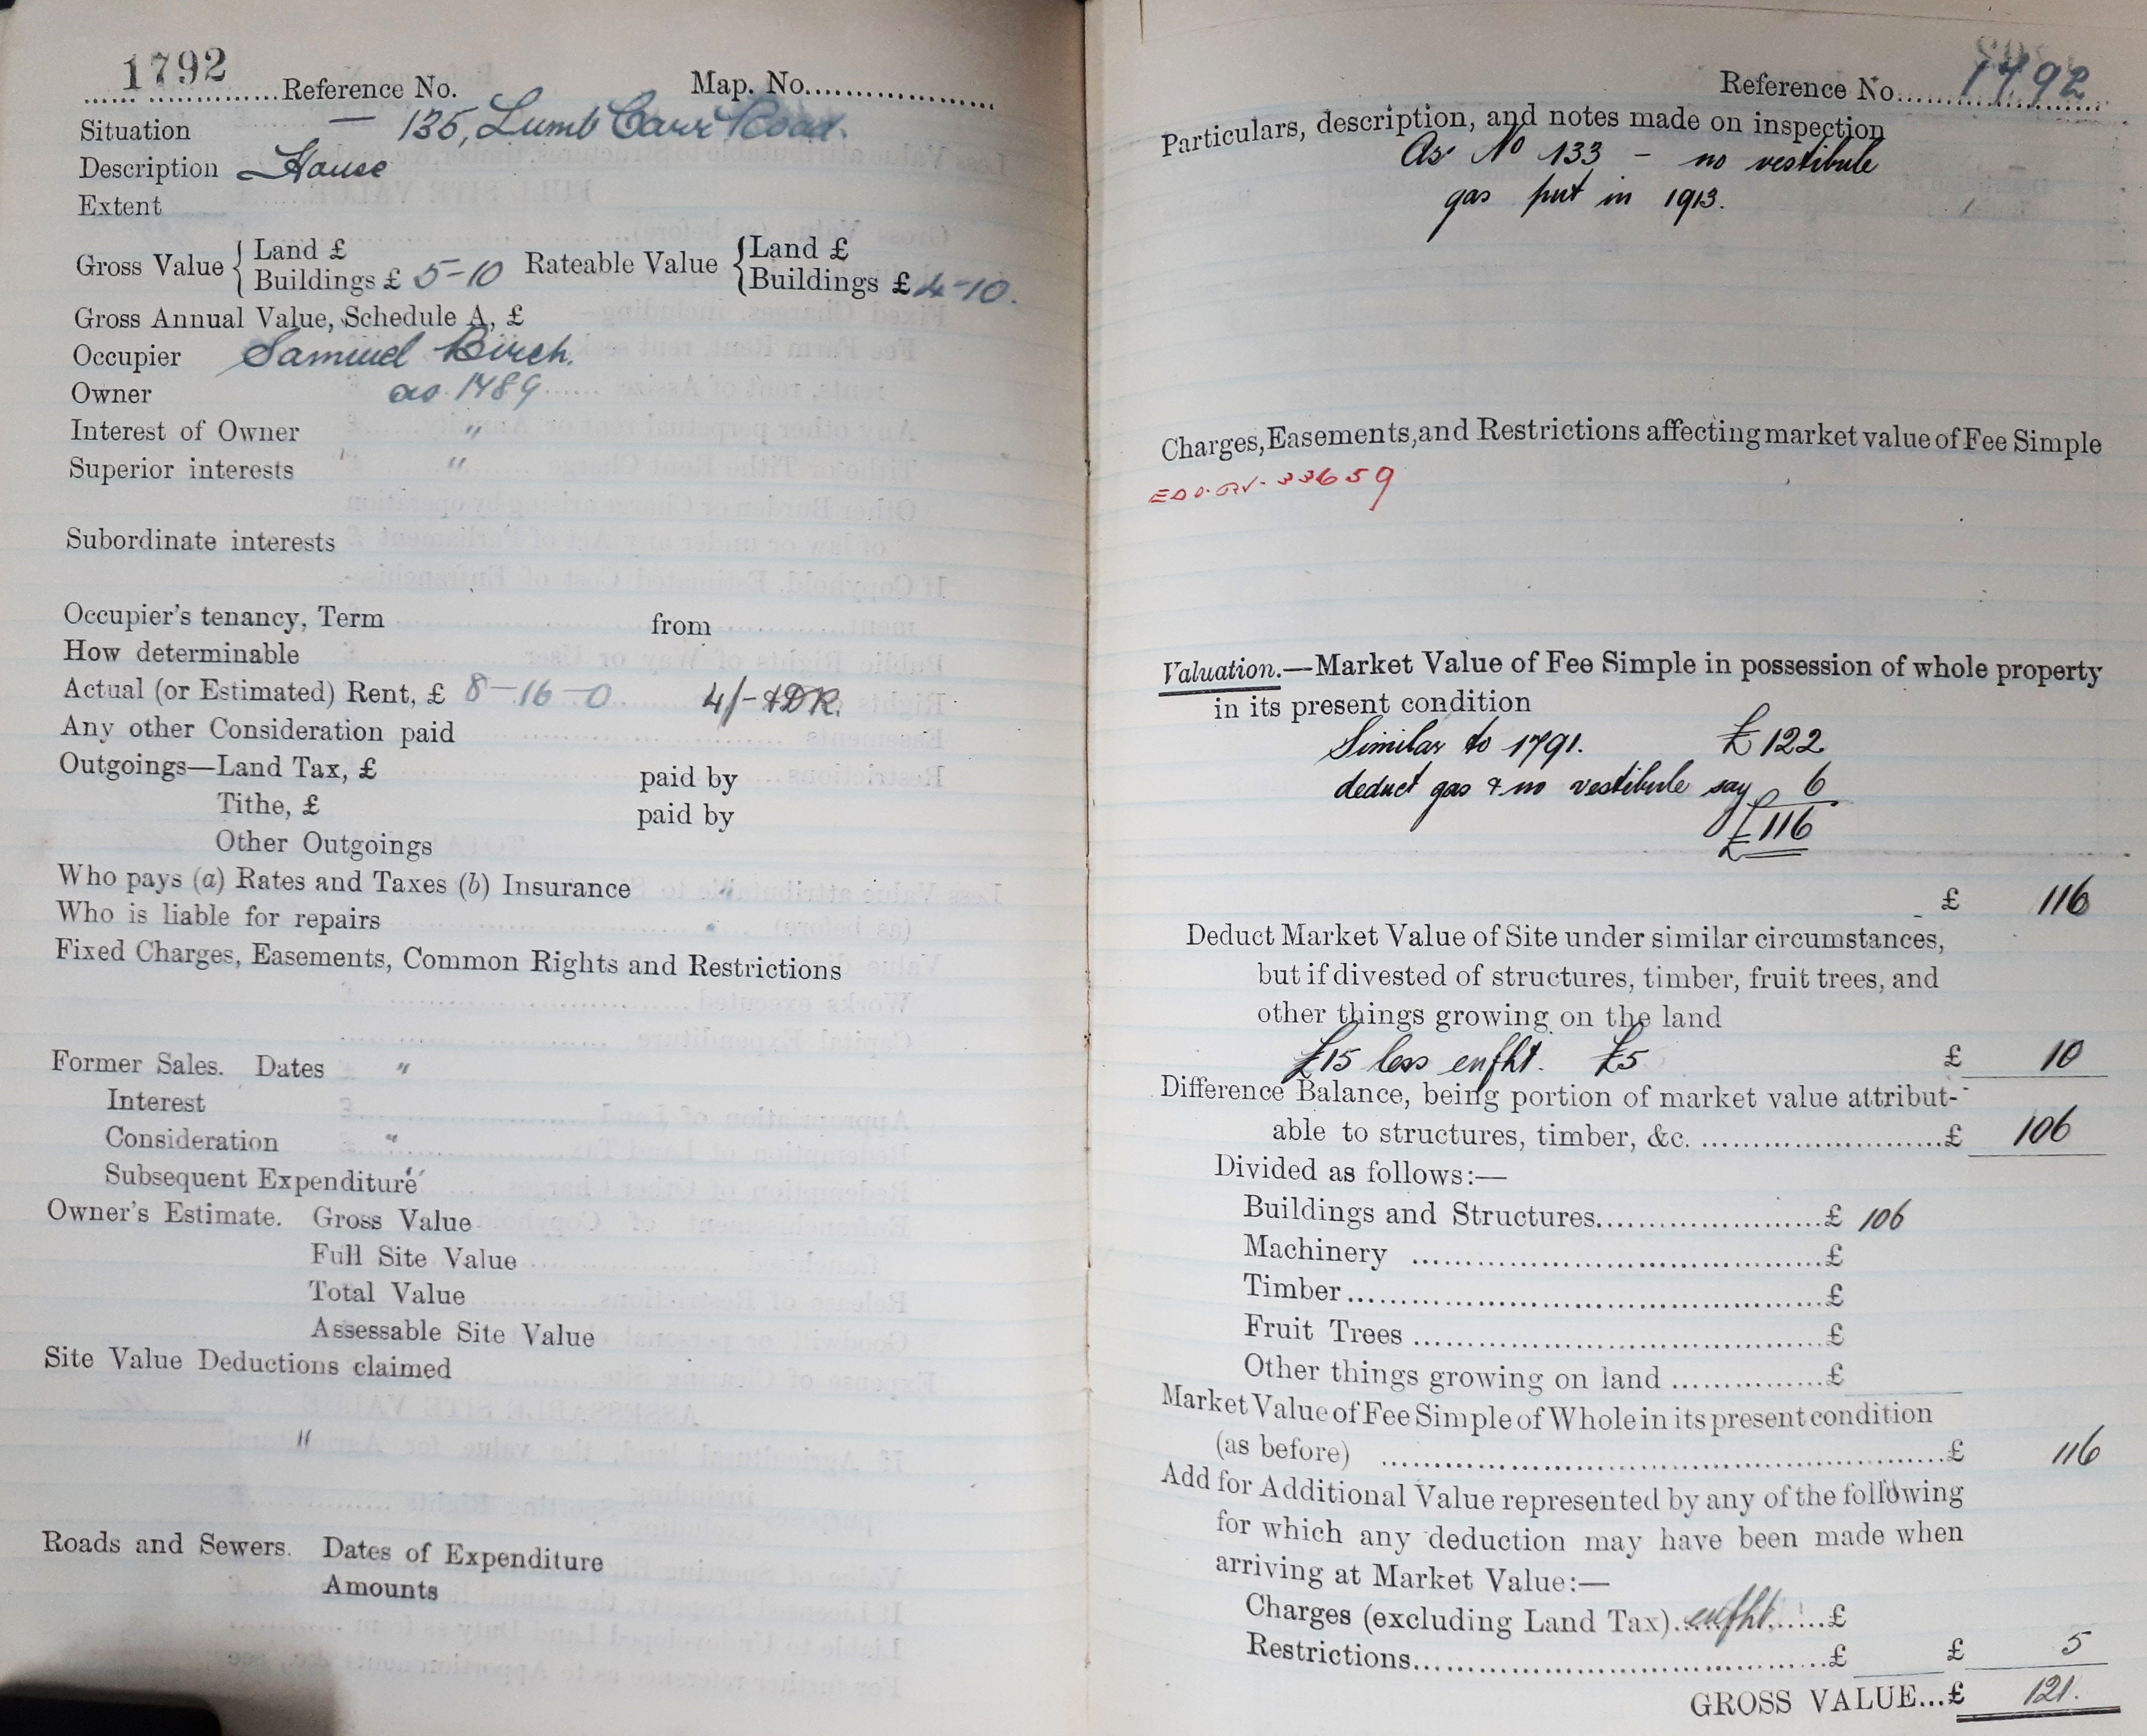 1792 Reference No. Map. No.
Situation — 135, Lumb Carr Road.
Description House
Extent
Gross Value { Land £ Rateable Value { Land £
Buildings £ 5-10 Buildings £ 4-10.
Gross Annual Value, Schedule A, £
Occupier Samuel Birch.
Owner as 1789
Interest of Owner "
Superior interests "
Subordinate interests
Occupier's tenancy, Term from
How determinable
Actual (or Estimated) Rent, £ 8-16-0 4/- & DR.
Any other Consideration paid
Outgoings—Land Tax, £ paid by
Tithe, £ paid by
Other Outgoings
Who pays (a) Rates and Taxes (b) Insurance "
Who is liable for repairs "
Fixed Charges, Easements, Common Rights and Restrictions
Former Sales. Dates "
Interest
Consideration "
Subsequent Expenditure "
Owner's Estimate. Gross Value
Full Site Value
Total Value
Assessable Site Value
Site Value Deductions claimed
"
Roads and Sewers. Dates of Expenditure
Amounts
Reference No. 1792
Particulars, description, and notes made on inspection
As No 133 - no vestibule
gas put in 1913.
Charges, Easements, and Restrictions affecting market value of Fee Simple
33659
Valuation.—Market Value of Fee Simple in possession of whole property
in its present condition
Similar to 1791. £122
deduct gas & no vestibule say 6
£116
£ 116
Deduct Market Value of Site under similar circumstances,
but if divested of structures, timber, fruit trees, and
other things growing on the land
£15 less enfht. £5 £ 10
Difference Balance, being portion of market value attribut-
able to structures, timber, &c. £ 106
Divided as follows:—
Buildings and Structures £ 106
Machinery £
Timber £
Fruit Trees £
Other things growing on land £
Market Value of Fee Simple of Whole in its present condition
(as before) £ 116
Add for Additional Value represented by any of the following
for which any deduction may have been made when
arriving at Market Value:—
Charges (excluding Land Tax) enfht. £
Restrictions £ £ 5
GROSS VALUE...£ 121.